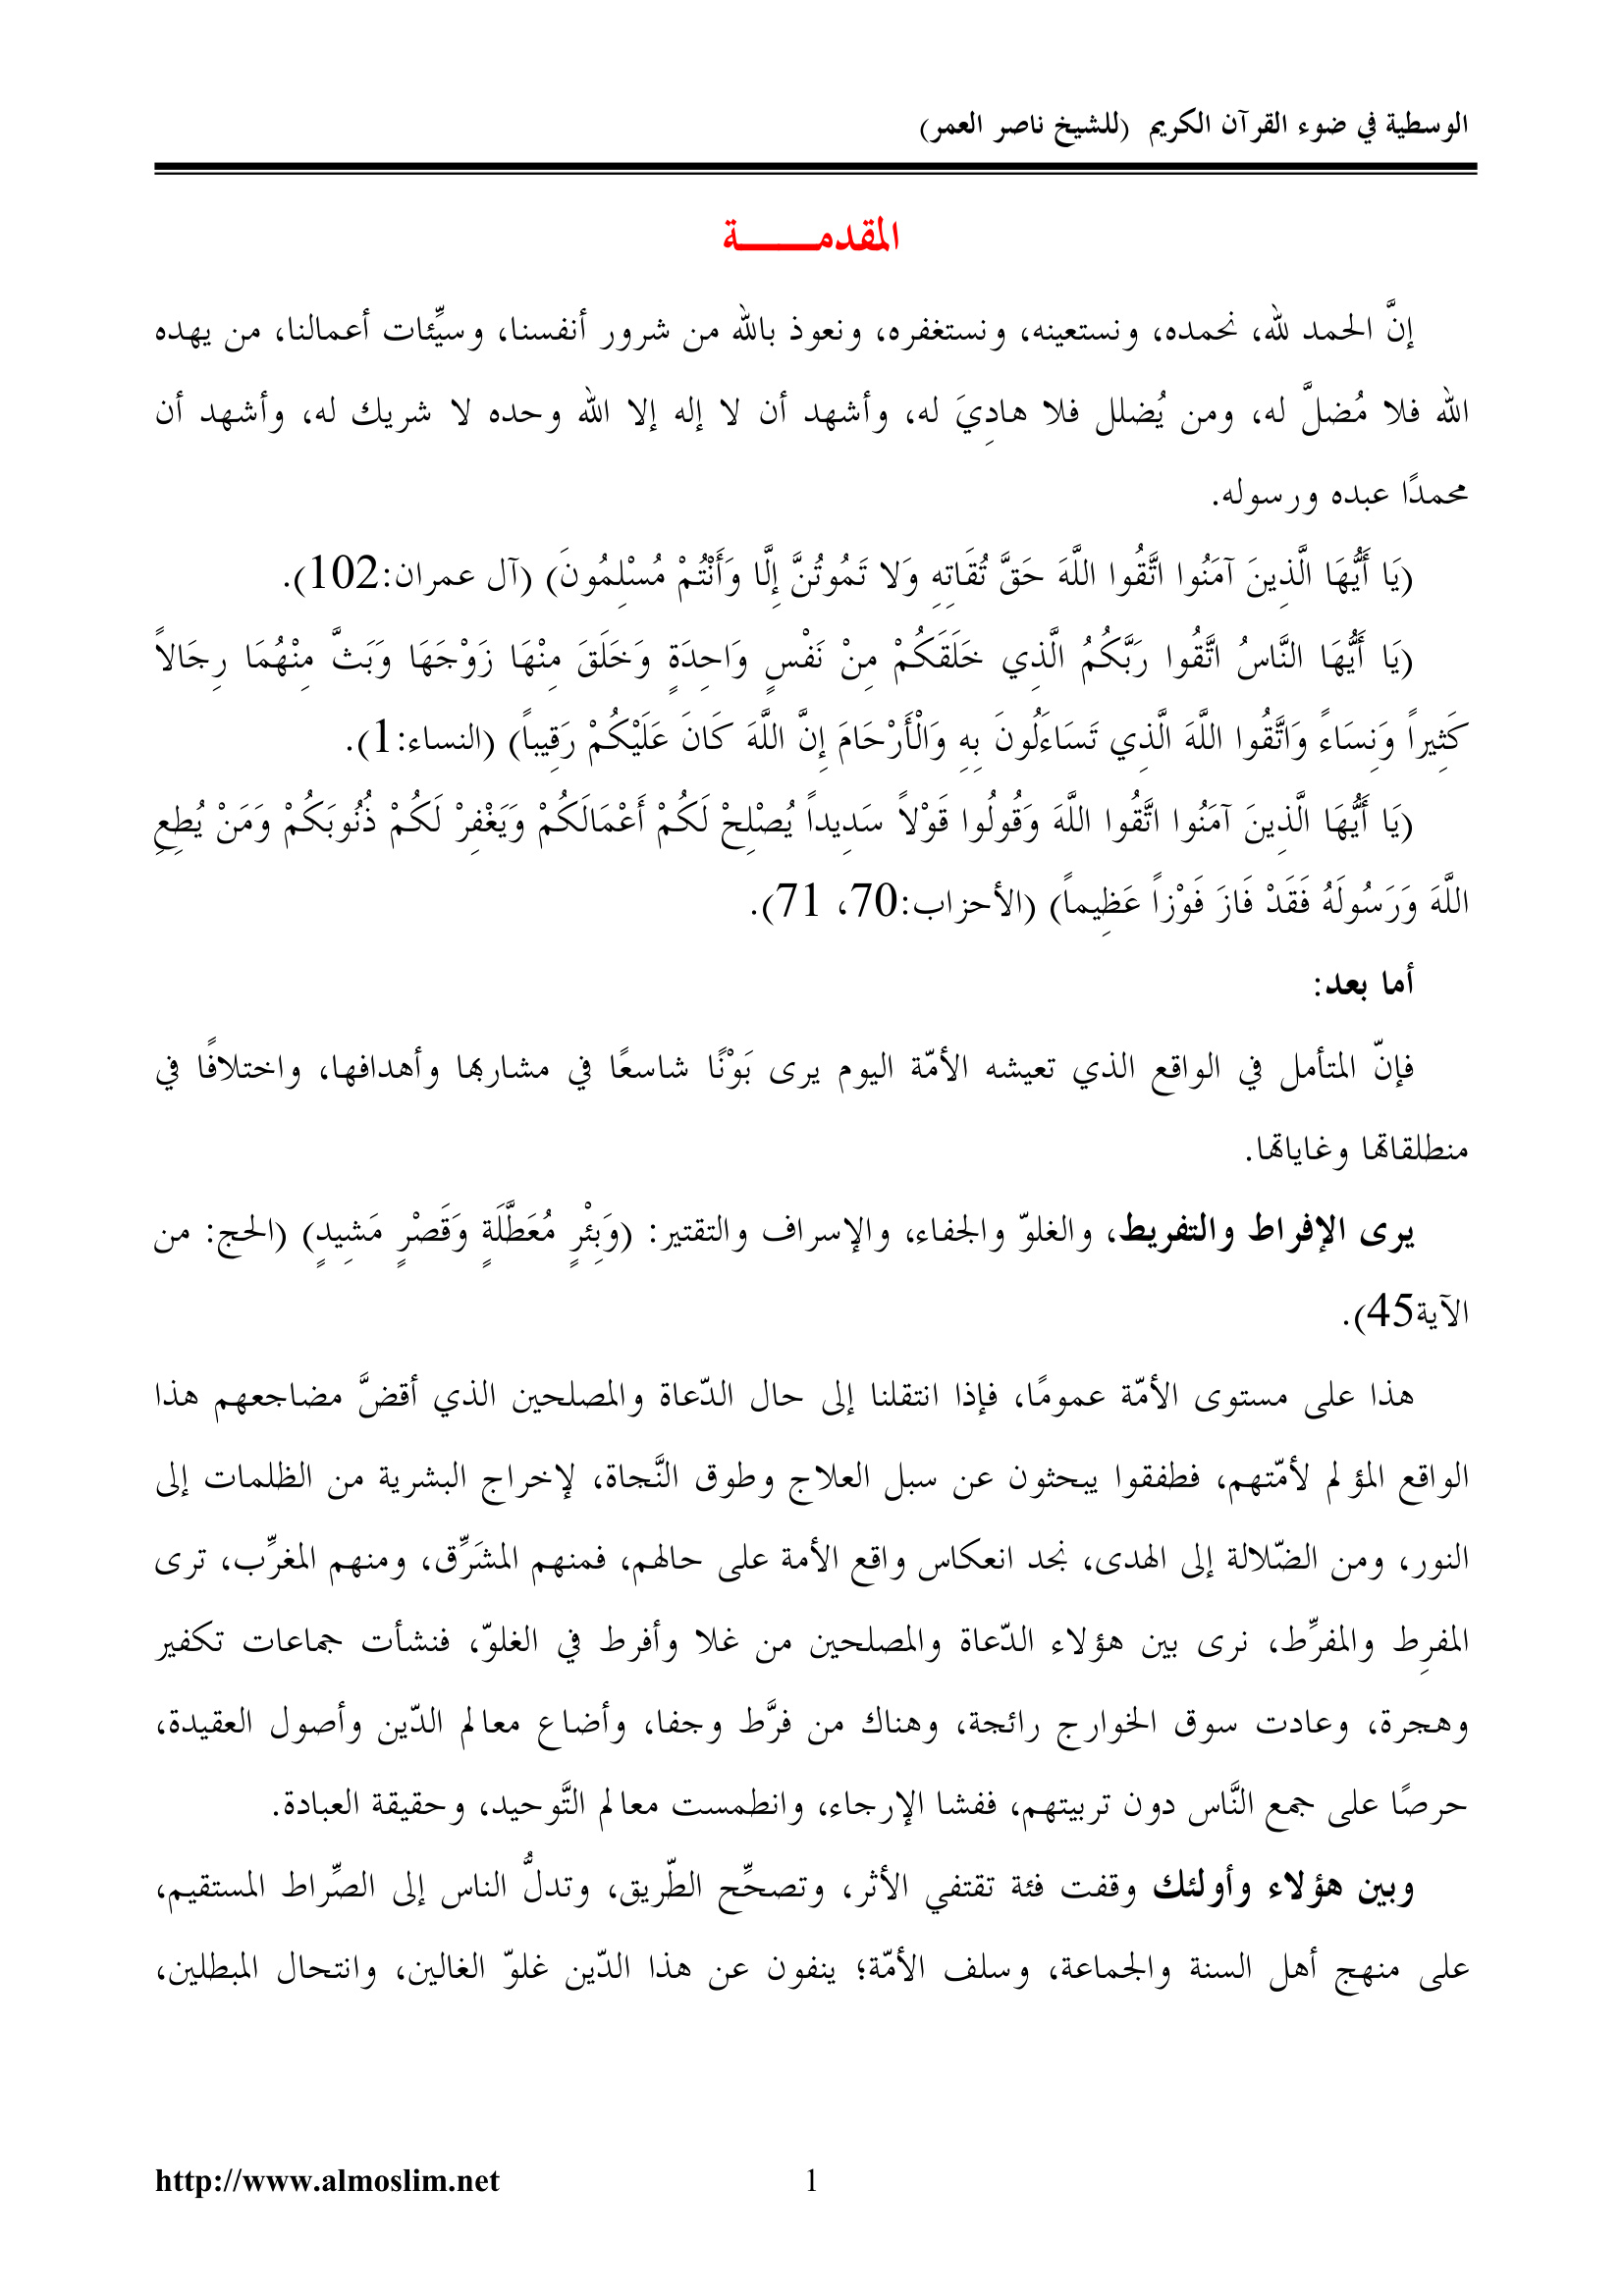 الوسطية في ضوء القرآن الكريم (للشيخ ناصر العمر)
المقدمـــــــة
إنَّ الحمد لله، نحمده، ونستعينه، ونستغفره، ونعوذ بالله من شرور أنفسنا، وسيِّئات أعمالنا، من يهده
الله فلا مُضلَّ له، ومن يُضلل فلا هادِيَ له، وأشهد أن لا إله إلا الله وحده لا شريك له، وأشهد أن
محمدًا عبده ورسوله.
(يَا أَيُّهَا الَّذِينَ آمَنُوا اتَّقُوا اللَّهَ حَقَّ تُقَاتِهِ وَلا تَمُوتُنَّ إِلَّا وَأَنْتُمْ مُسْلِمُونَ) (آل عمران:102).
(يَا أَيُّهَا النَّاسُ اتَّقُوا رَبَّكُمُ الَّذِي خَلَقَكُمْ مِنْ نَفْسٍ وَاحِدَةٍ وَخَلَقَ مِنْهَا زَوْجَهَا وَبَثَّ مِنْهُمَا رِجَالاً
كَثِيراً وَنِسَاءً وَاتَّقُوا اللَّهَ الَّذِي تَسَاءَلُونَ بِهِ وَالْأَرْحَامَ إِنَّ اللَّهَ كَانَ عَلَيْكُمْ رَقِيباً) (النساء:1).
(يَا أَيُّهَا الَّذِينَ آمَنُوا اتَّقُوا اللَّهَ وَقُولُوا قَوْلاً سَدِيداً يُصْلِحْ لَكُمْ أَعْمَالَكُمْ وَيَغْفِرْ لَكُمْ ذُنُوبَكُمْ وَمَنْ يُطِعِ
اللَّهَ وَرَسُولَهُ فَقَدْ فَازَ فَوْزاً عَظِيماً) (الأحزاب:70، 71).
أما بعد:
فإنّ المتأمل في الواقع الذي تعيشه الأمّة اليوم يرى بَوْنًا شاسعًا في مشاربها وأهدافها، واختلافًا في
منطلقاتها وغاياتها.
يرى الإفراط والتفريط، والغلوّ والجفاء، والإسراف والتقتير: (وَبِئْرٍ مُعَطَّلَةٍ وَقَصْرٍ مَشِيدٍ) (الحج: من
الآية45).
هذا على مستوى الأمّة عمومًا، فإذا انتقلنا إلى حال الدّعاة والمصلحين الذي أقضَّ مضاجعهم هذا
الواقع المؤلم لأمّتهم، فطفقوا يبحثون عن سبل العلاج وطوق النَّجاة، لإخراج البشرية من الظلمات إلى
النور، ومن الضّلالة إلى الهدى، نجد انعكاس واقع الأمة على حالهم، فمنهم المشَرِّق، ومنهم المغرِّب، ترى
المفرِط والمفرِّط، نرى بين هؤلاء الدّعاة والمصلحين من غلا وأفرط في الغلوّ، فنشأت جماعات تكفير
وهجرة، وعادت سوق الخوارج رائجة، وهناك من فرَّط وجفا، وأضاع معالم الدّين وأصول العقيدة،
حرصًا على جمع النَّاس دون تربيتهم، ففشا الإرجاء، وانطمست معالم التَّوحيد، وحقيقة العبادة.
وبين هؤلاء وأولئك وقفت فئة تقتفي الأثر، وتصحِّح الطّريق، وتدلُّ الناس إلى الصِّراط المستقيم،
على منهج أهل السنة والجماعة، وسلف الأمّة؛ ينفون عن هذا الدّين غلوّ الغالين، وانتحال المبطلين،
http://www.almoslim.net 1